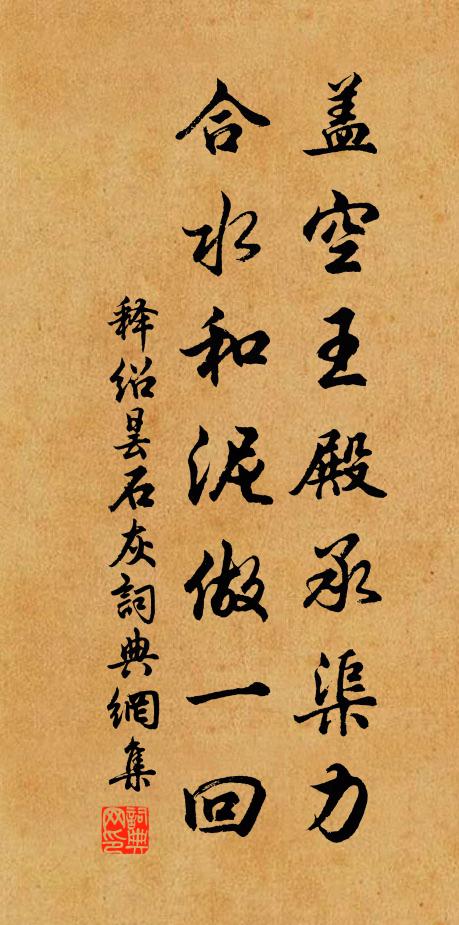 盖空王殿承渠力
合水和泥做一回
释绍昙石灰詞典網集
詞典網印